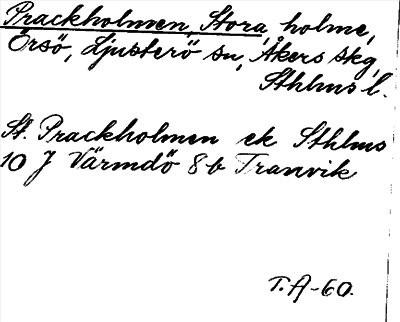 Prackholmen, Stora, holme,
Örsö, Ljusterö sn, Åkers skg,
Sthlms l.
St. Prackholmen ek Sthlms
10 J Värmdö 8b Tranvik
T.A-60.